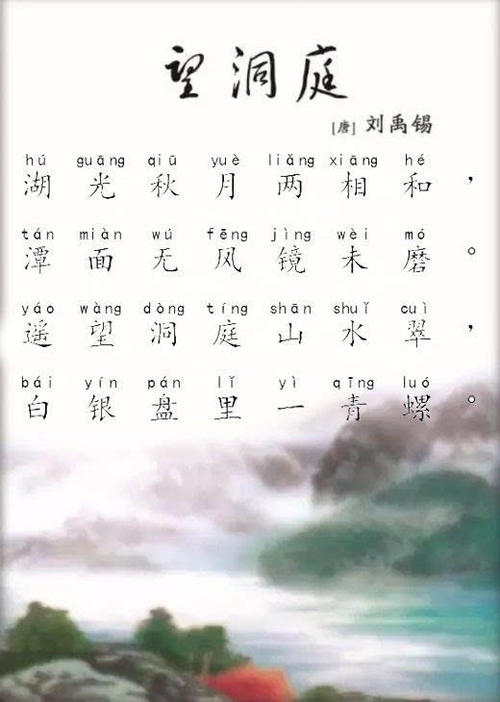 望洞庭
[唐] 刘禹锡
hú guāng qiū yuè liǎng xiāng hé
湖光秋月两相和，
tán miàn wú fēng jìng wèi mó
潭面无风镜未磨。
yáo wàng dòng tíng shān shuǐ cuì
遥望洞庭山水翠，
bái yín pán lǐ yì qīng luó
白银盘里一青螺。